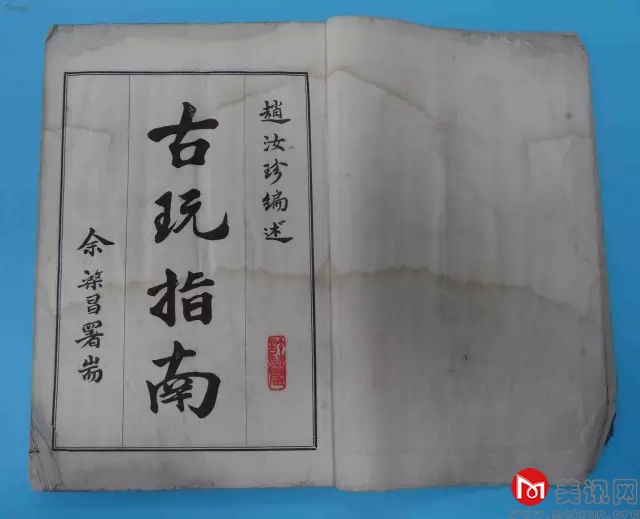 趙汝珍編述
古玩指南
余棨昌署耑
美讯网
www.meixun.org